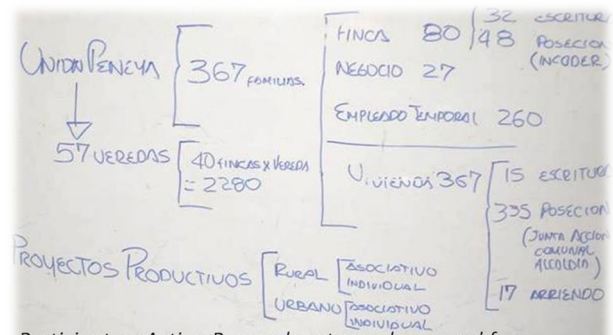 UNION PENEYA
367 FAMILIAS
FINCA 80
32 ESCRITUR
48 POSECION
(INCODER)
NEGOCIO 27
EMPLEADO TEMPORAL 260
57 VEREDAS
40 FINCAS X VEREDA
= 2280
VIVIENDA 367
15 ESCRITURA
335 POSECION
(JUNTA ACCION
COMUNAL
ALCALDIA)
17 ARRIENDO
PROYECTOS PRODUCTIVOS
RURAL
ASOCIATIVO
INDIVIDUAL
URBANO
ASOCIATIVO
INDIVIDUAL